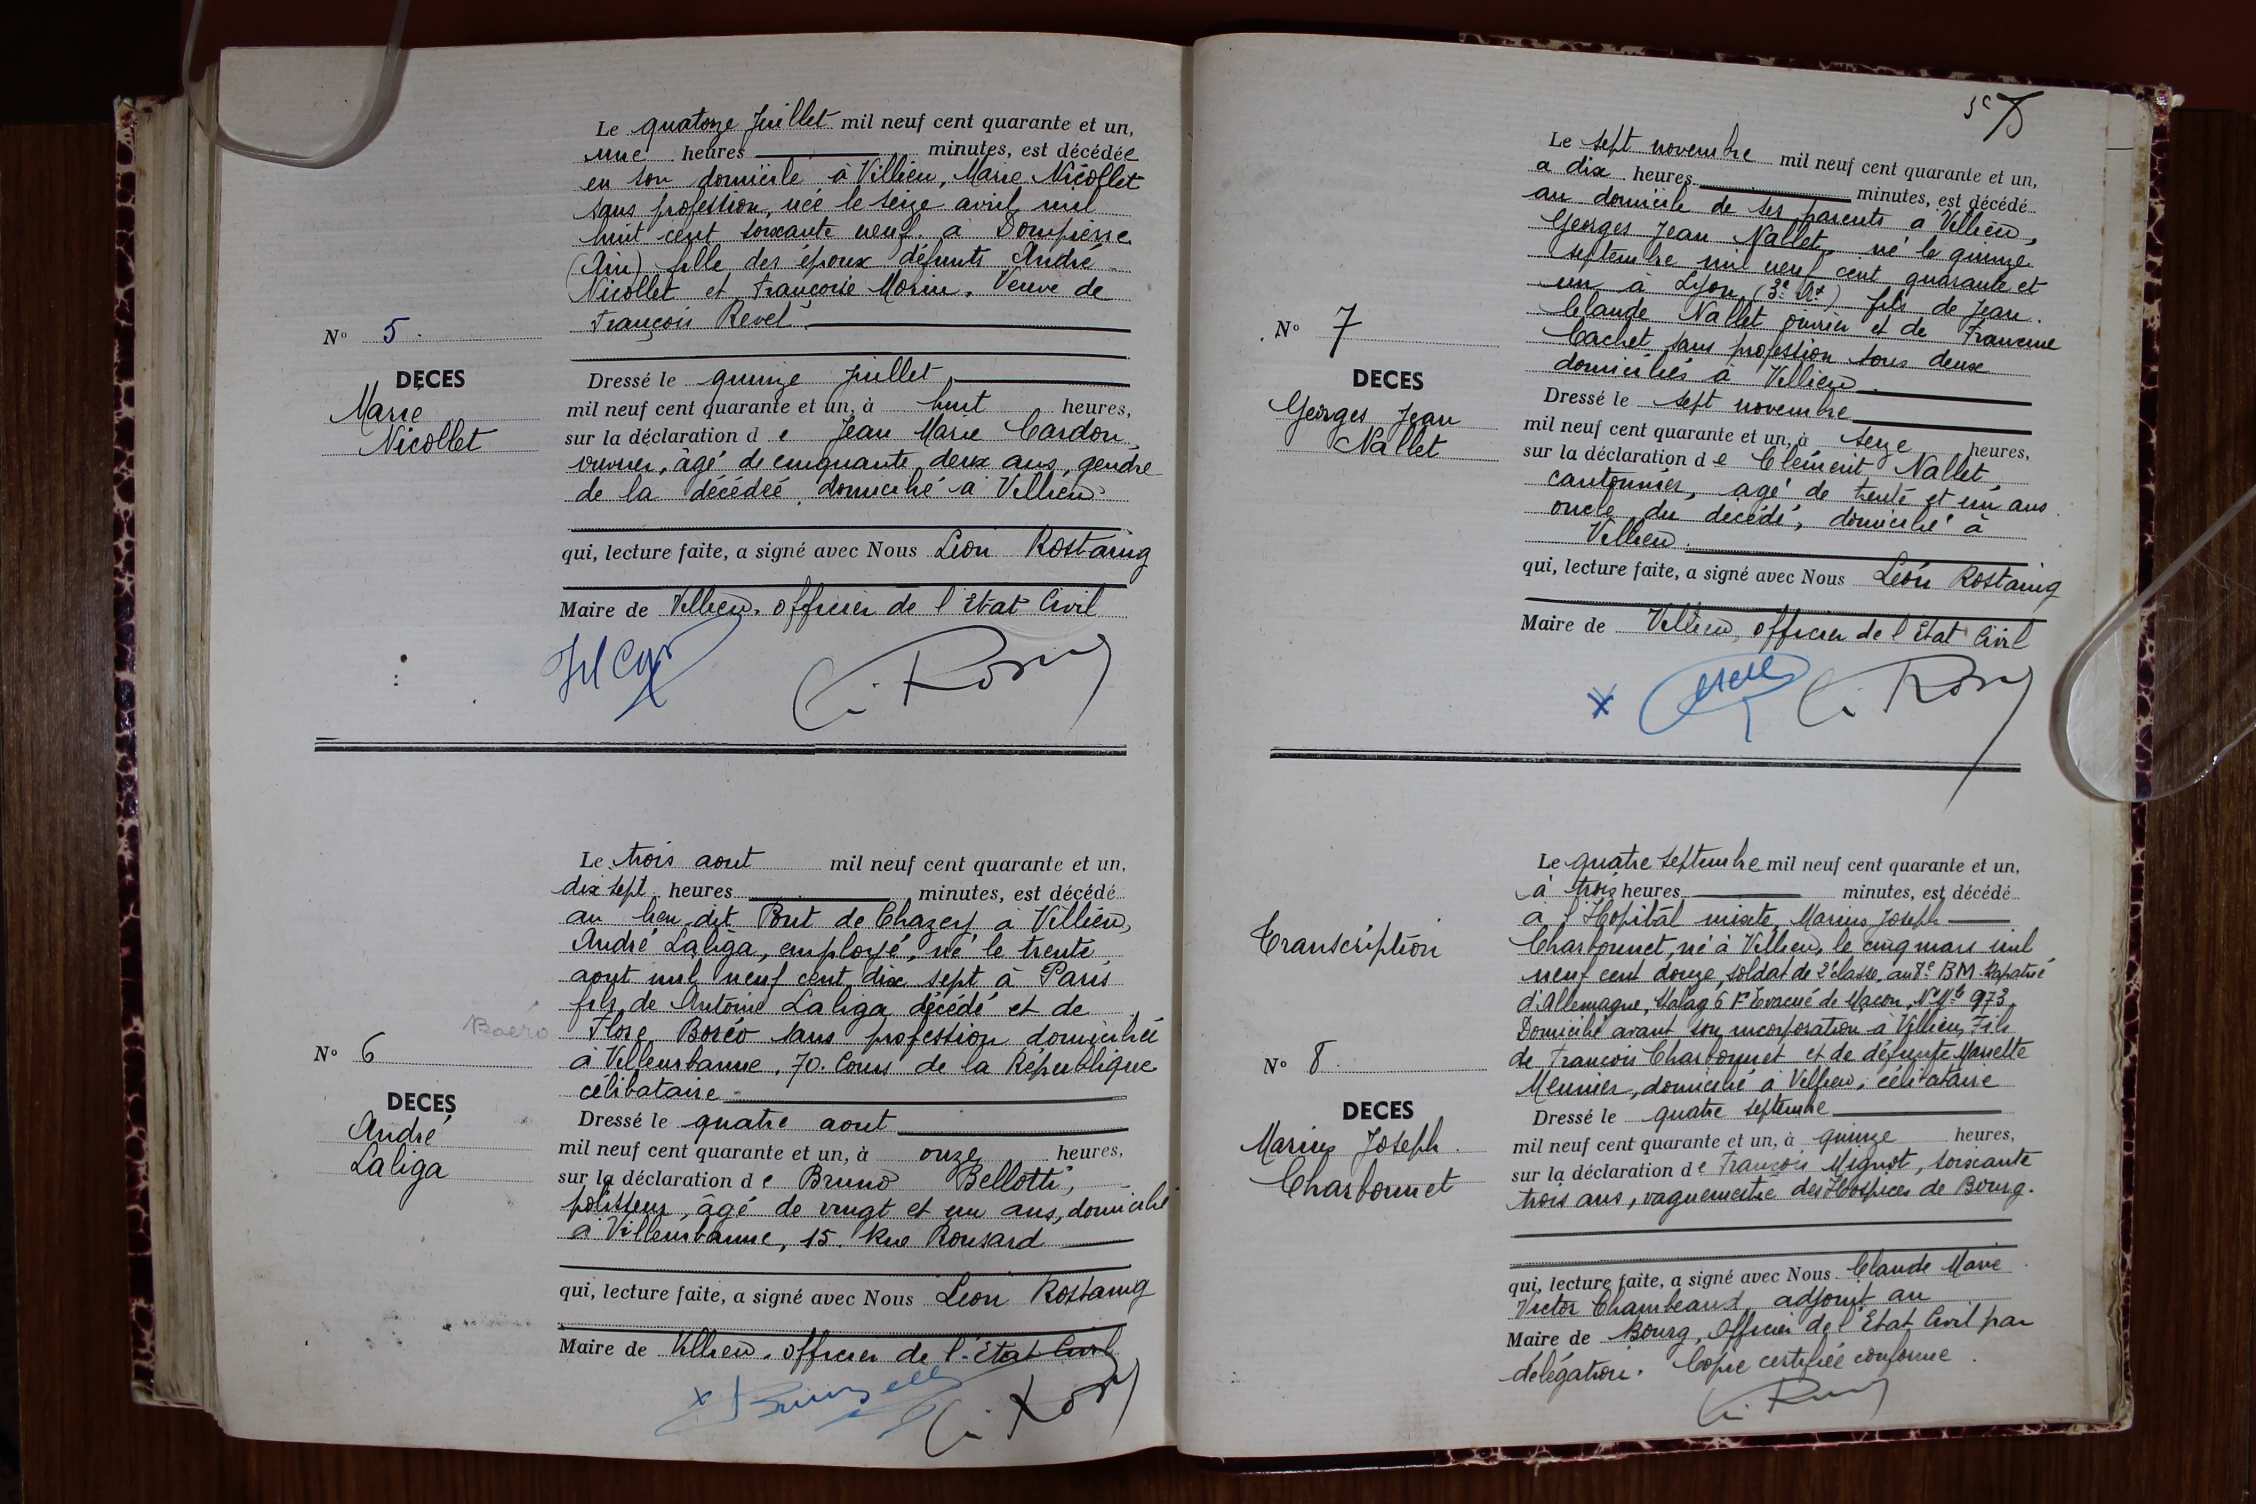 Le quatorze Juillet mil neuf cent quarante et un,
une heures minutes, est décédée
en son domicile à Villieu, Marie Nicollet
sans profession, née le seize avril mil
huit cent soixante neuf à Dompierre
(Ain) fille des époux défunts André
Nicollet et Françoise Morin. Veuve de
François Revel
N° 5.
DECES
Marie
Nicollet
Dressé le quinze Juillet
mil neuf cent quarante et un, à huit heures,
sur la déclaration d e Jean Marie Cardon
ouvrier, âgé de cinquante deux ans, gendre
de la décédée domicilié à Villieu
qui, lecture faite, a signé avec Nous Léon Rostaing
Maire de Villieu. officier de l'Etat Civil
Le trois aout mil neuf cent quarante et un,
dix sept heures minutes, est décédé
au lieu dit Port de Chazey à Villieu,
André Laliga, employé, né le trente
aout mil neuf cent dix sept à Paris
fils de Antoine Laliga décédé et de
Baero Flore Boréo sans profession domiciliée
à Villeurbanne, 70. Cours de la République
célibataire
N° 6
DECES
André
Laliga
Dressé le quatre aout
mil neuf cent quarante et un, à onze heures,
sur la déclaration d e Bruno Bellotti,
polisseur, âgé de vingt et un ans, domicilié
à Villeurbanne, 15. Rue Ronsard
qui, lecture faite, a signé avec Nous Léon Rostaing
Maire de Villieu. officier de l'Etat Civil
Le sept novembre mil neuf cent quarante et un,
a dix heures minutes, est décédé
au domicile de ses parents à Villieu,
Georges Jean Nallet, né le quinze
septembre mil neuf cent quarante et
un à Lyon (3e Art) fils de Jean
Claude Nallet ouvrier et de Francine
Cachet sans profession tous deux
domiciliés à Villieu
N° 7
DECES
Georges Jean
Nallet
Dressé le sept novembre
mil neuf cent quarante et un, à seize heures,
sur la déclaration d e Clément Nallet,
cantonnier, agé de trente et un ans
oncle du décédé, domicilié à
Villieu
qui, lecture faite, a signé avec Nous Léon Rostaing
Maire de Villieu, officier de l'Etat Civil
Le quatre septembre mil neuf cent quarante et un,
à trois heures minutes, est décédé
à l'Hopital mixte Marius Joseph
Charbonnet, né à Villieu, le cinq mars mil
neuf cent douze, soldat de 2e classe, au 8e BM. Rapatrié
d'Allemagne, Stalag 6 F Evacué de Macon, 973.
Domicilié avant son incorporation à Villieu, Fils
de François Charbonnet et de défunte Mariette
Meunier, domicilié à Villieu, célibataire
Transcription
N° 8
DECES
Marius Joseph
Charbonnet
Dressé le quatre septembre
mil neuf cent quarante et un, à quinze heures,
sur la déclaration d e François Mignot, soixante
trois ans, vaguemestre des Hospices de Bourg.
qui, lecture faite, a signé avec Nous Claude Marie
Victor Chambeaud adjoint au
Maire de Bourg, Officier de l'Etat Civil par
délégation. Copie certifiée conforme.